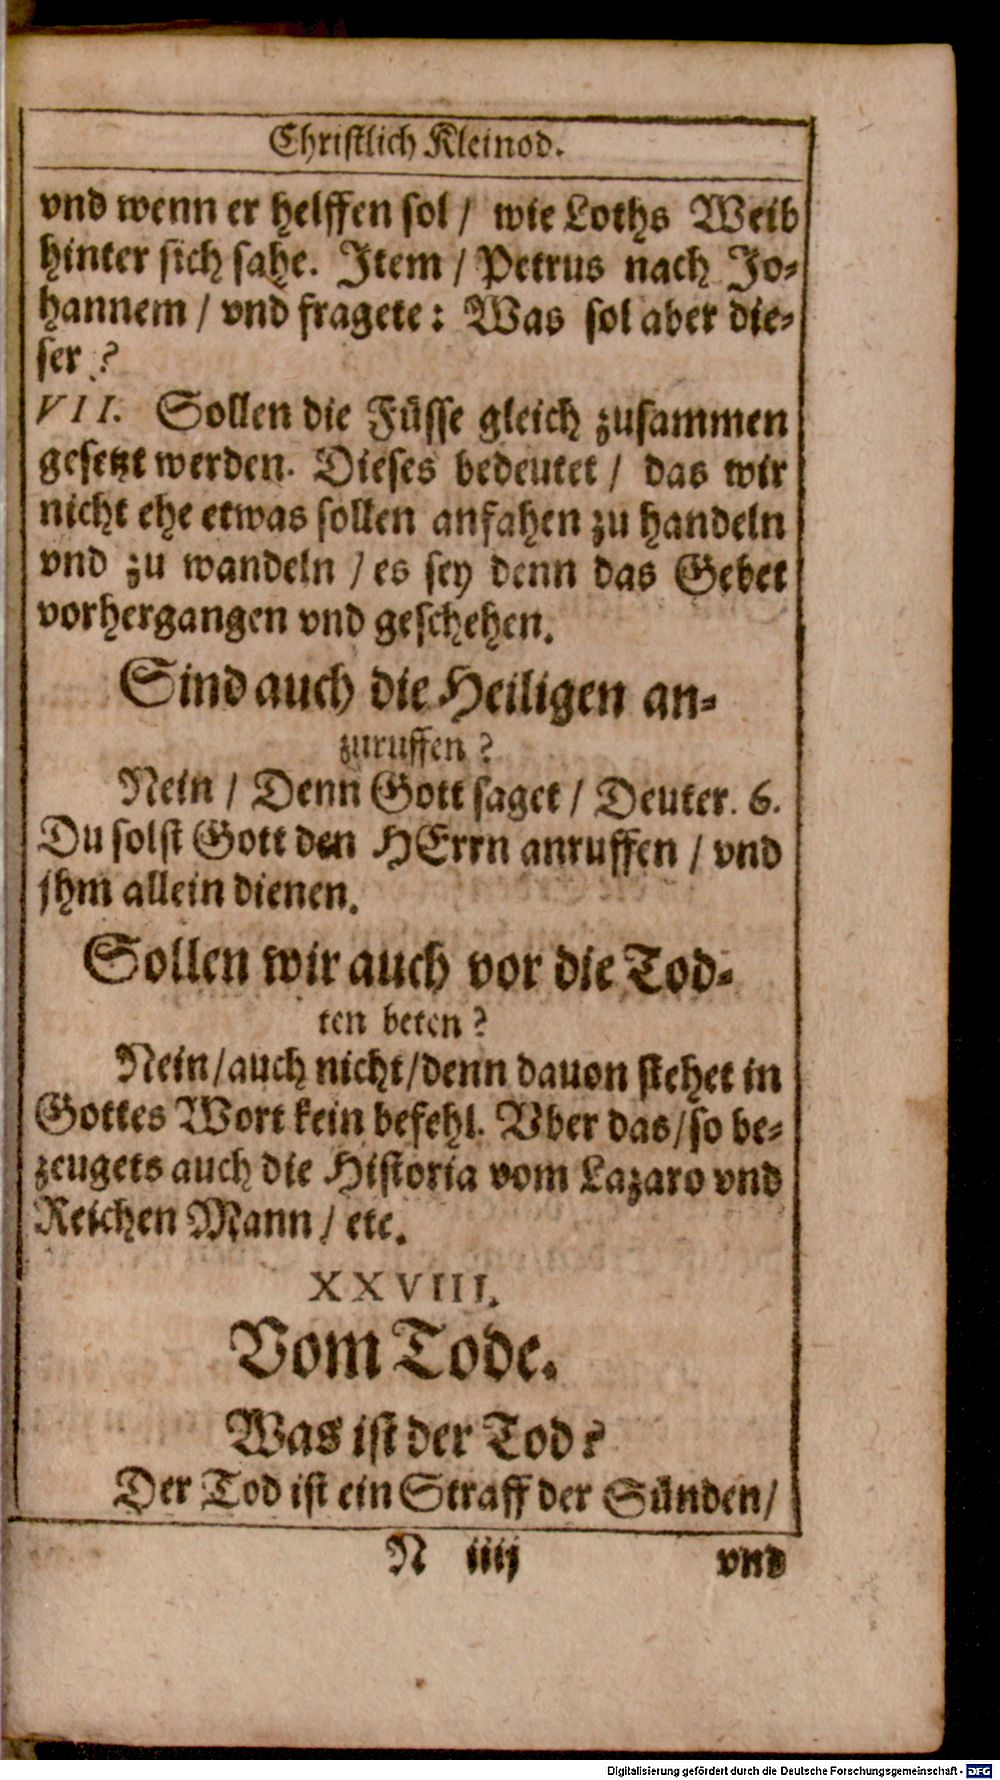 Christlich Kleinod.
vnd wenn er helffen sol / wie Loths Weib
hinter sich sahe. Item / Petrus nach Jo-
hannem / vnd fragete: Was sol aber die-
ser ?
VII. Sollen die Füsse gleich zusammen
gesetzt werden. Dieses bedeutet / das wir
nicht ehe etwas sollen anfahen zu handeln
vnd zu wandeln / es sey denn das Gebet
vorhergangen vnd geschehen.
Sind auch die Heiligen an-
zuruffen ?
Nein / Denn Gott saget / Deuter. 6.
Du solst Gott den HErrn anruffen / vnd
jhm allein dienen.
Sollen wir auch vor die Tod-
ten beten ?
Nein / auch nicht / denn dauon stehet in
Gottes Wort kein befehl. Vber das / so be-
zeugets auch die Historia vom Lazaro vnd
Reichen Mann / etc.
XXVIII.
Vom Tode.
Was ist der Tod ?
Der Tod ist ein Straff der Sünden /
N iiij vnd
Digitalisierung gefördert durch die Deutsche Forschungsgemeinschaft - DFG